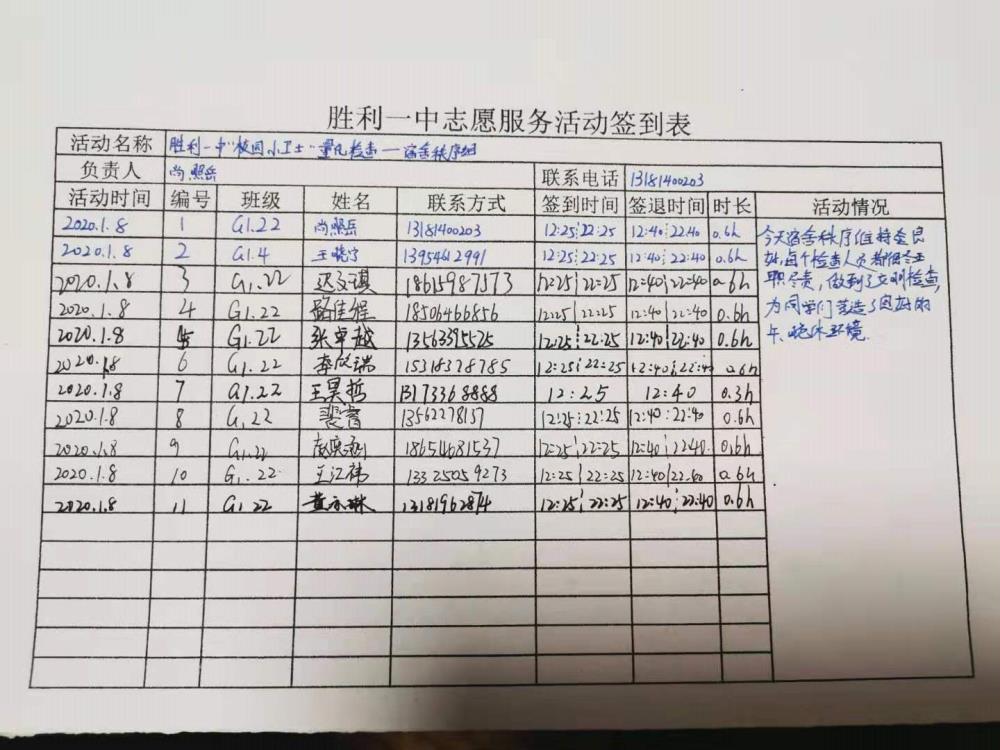 胜利一中志愿服务活动签到表
活动名称 胜利一中"校园小卫士"量化检查一宿舍秩序组
负责人 尚熙岳 联系电话 13181400203
活动时间 编号 班级 姓名 联系方式 签到时间 签退时间 时长 活动情况
2020.1.8 1 G1.22 尚熙岳 13181400203 12:25 22:25 12:40 22:40 0.6h
2020.1.8 2 G1.4 王晓宁 13954612991 12:25 22:25 12:40 22:40 0.6h
2020.1.8 3 G1.22 迟文琪 18615987573 12:25 22:25 12:40 22:40 0.6h
2020.1.8 4 G1.22 骆佳程 18506466856 12:25 22:25 12:40 22:40 0.6h
2020.1.8 5 G1.22 张卓越 13563395525 12:25 22:25 12:40 22:40 0.6h
2020.1.8 6 G1.22 李欣瑞 15318378785 12:25 22:25 12:40 22:40 0.6h
2020.1.8 7 G1.22 王昊哲 13173368888 12:25 12:40 0.3h
2020.1.8 8 G1.22 13562278157 12:25 22:25 12:40 22:40 0.6h
2020.1.8 9 G1.22 18654681537 12:25 22:25 12:40 22:40 0.6h
2020.1.8 10 G1.22 王江祎 13325059273 12:25 22:25 12:40 22:40 0.6h
2020.1.8 11 G1.22 13181962874 12:25 22:25 12:40 22:40 0.6h
今天宿舍秩序维持会良
好,每个检查人员都很尽
职尽责,做到了文明检查,
为同学们营造了良好的
午、晚休环境.